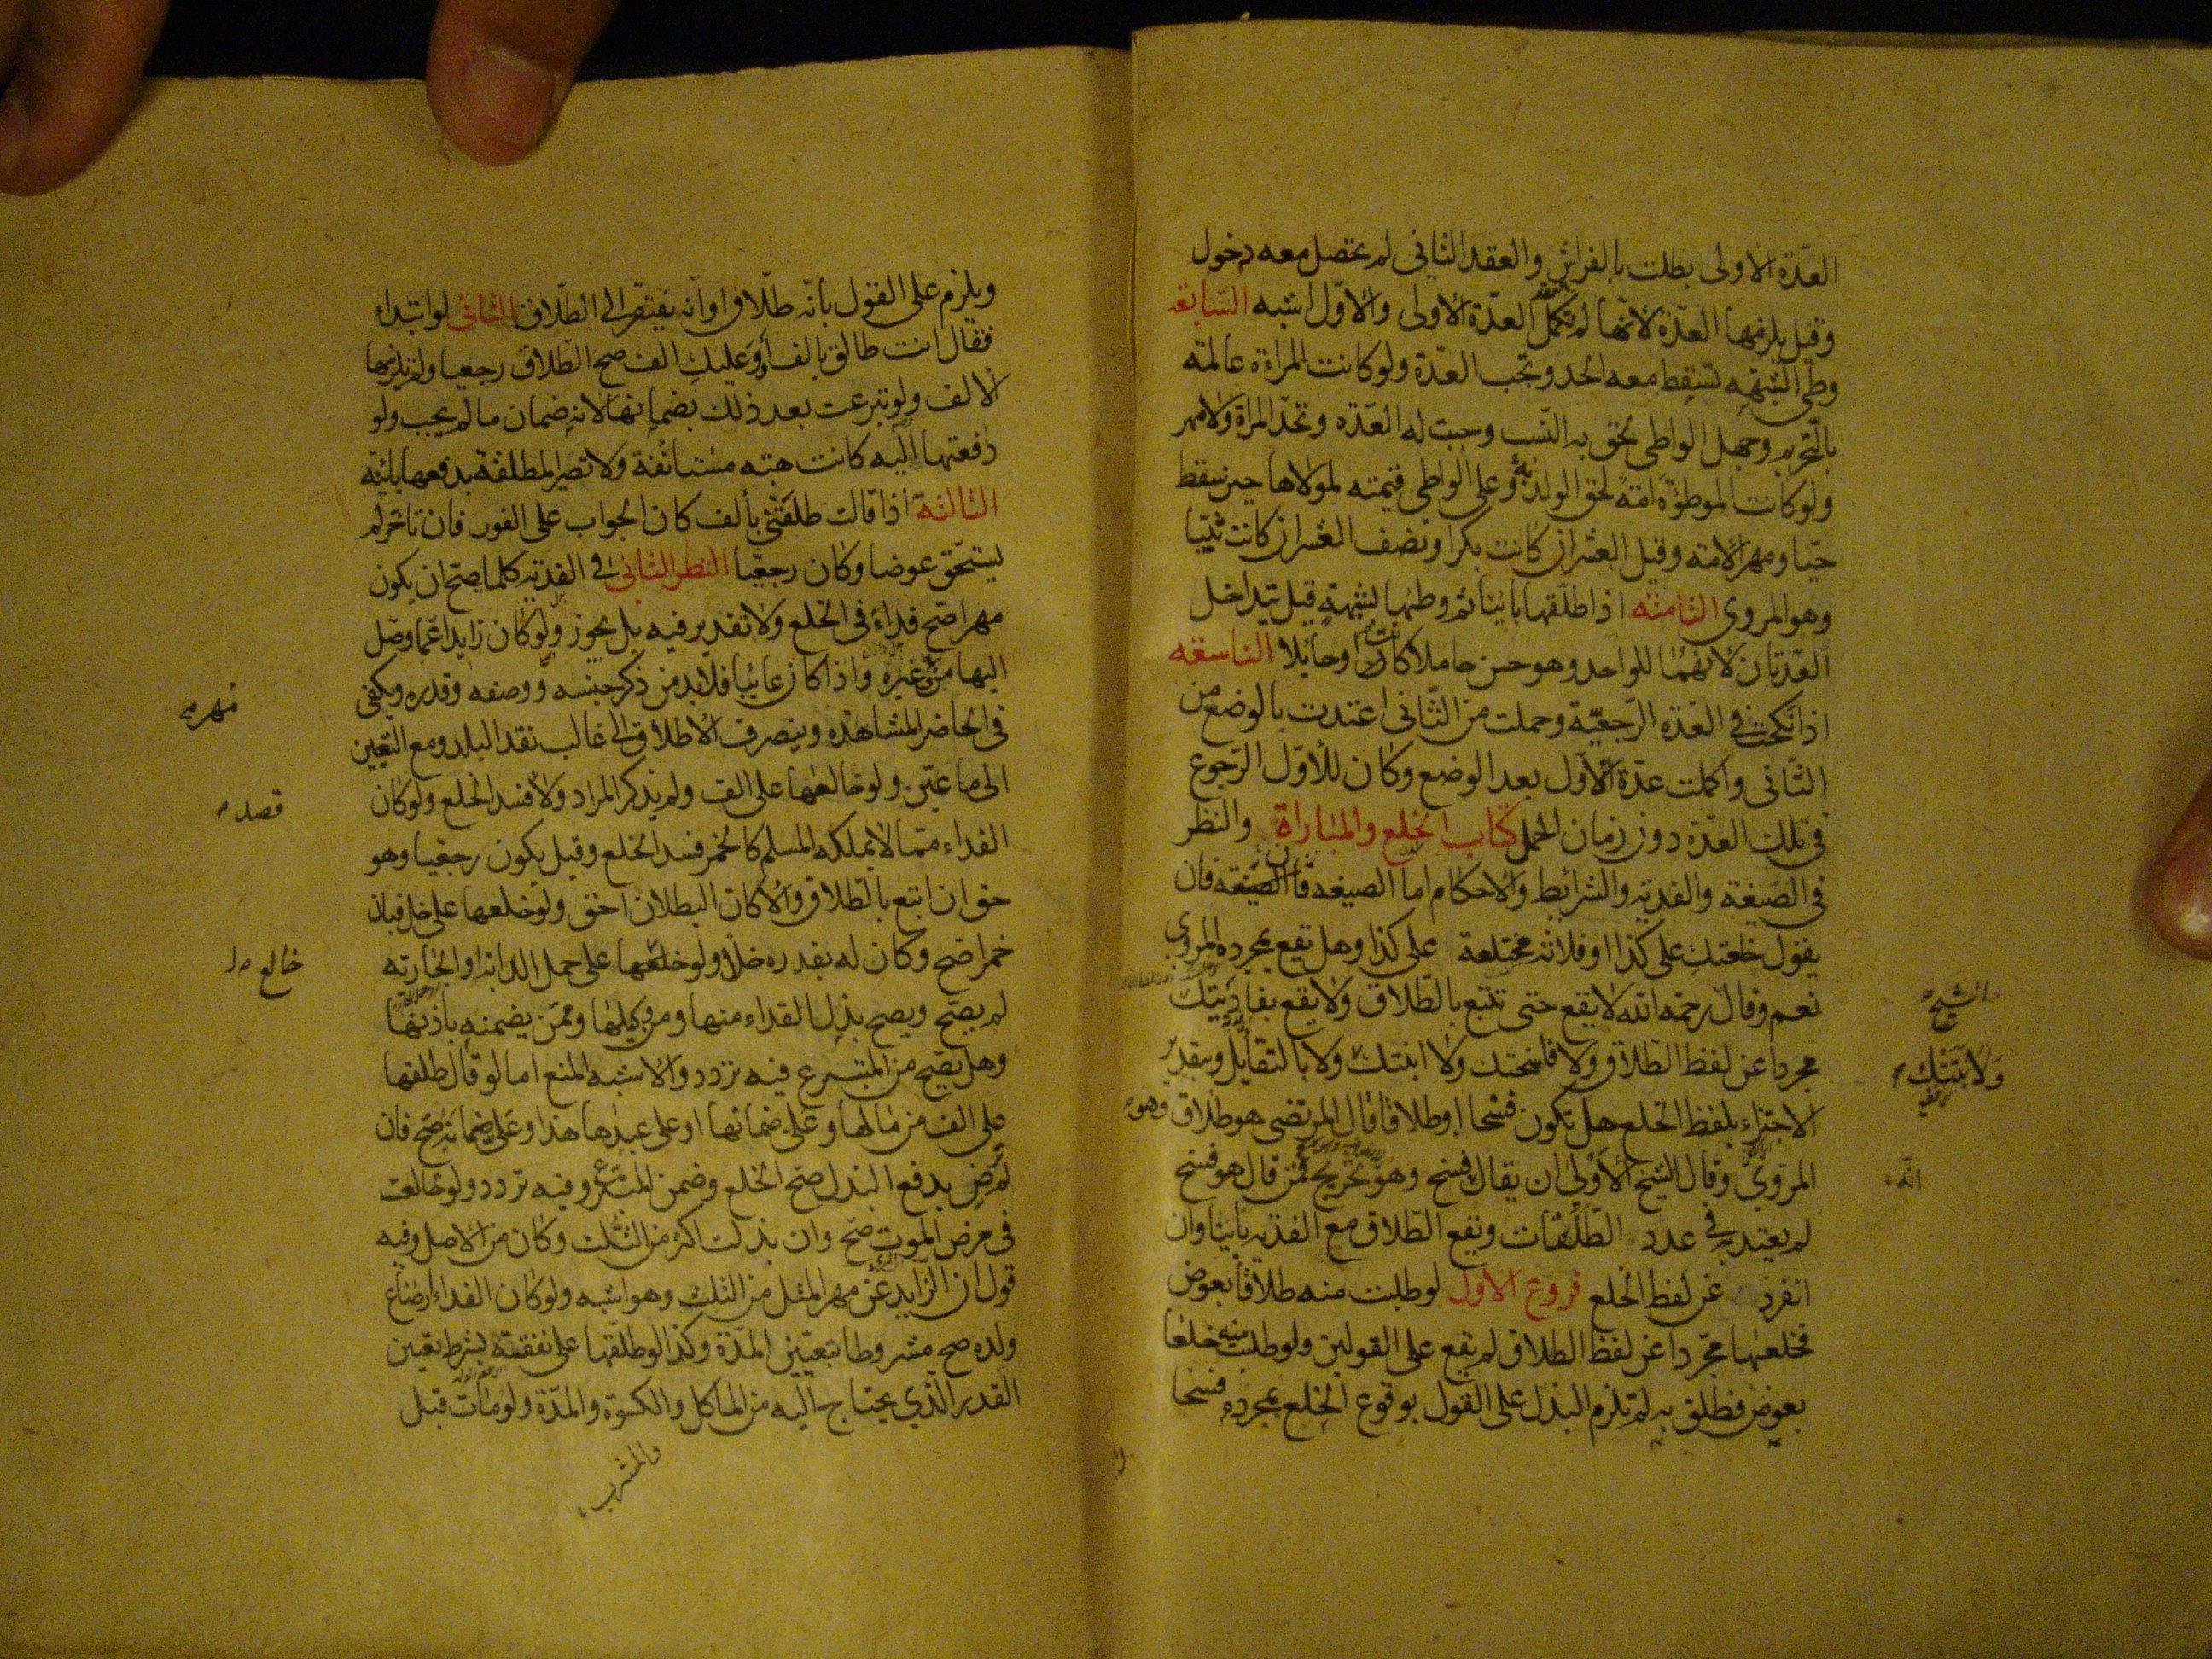 العدّة الاولى بطلت بالفراش والعقد الثانى لم يحصل معه دخول
وقيل يلزمها العدّة لانّها لم تكمل العدّة الاولى والاوّل اشبه السّابعة
وطى الشبهه تسقط معه الحد وتجب العدّة ولو كانت المراءة عالمة
بالتّحريم وجهل الواطى لحق به النّسب وجبت له العدّه وتحدّ المراة ولا مهر
ولو كانت الموطوءة امة لحق الولد به وعلى الواطى قيمته لمولاها حين سقط
حيّا ومهر الامة وقيل العشر ان كانت بكرا ونصف العشر ان كانت ثيّبا
وهو المروى الثامنة اذا طلّقها باينا ثم وطئها لشبهة قيل تتداخل
العدّتان لانهمُا للواحد وهو حسن حاملا كانت او حايلا التاسعه
اذا نكحت فى العدّة الرّجعيّة وحملت من الثّانى اعتدت بالوضع من
الثّانى واكملت عدّة الاوّل بعد الوضع وكان للأوّل الرّجوع
فى تلك العدّة دون زمان الحمل كتاب الخلع والمباراة والنظر
فى الصّيغة والفدية والشرائط والاحكام اما الصيغه فان
يقول خلعتك على كذا او فلانة مختلعة على كذا وهل تقع بمجرده المروى
نعم وقال رحمه الله لا يقع حتى تتبع بالطّلاق ولا يقع بفاديتك
مجردا عن لفظ الطّلاق ولا فاسختك ولا ابنتك ولا بالتقايل وبتقدير
الاجتزاء بلفظ الخلع هل تكون فسخا او طلاقا قال المرتضى هو طلاق وهو
المروى وقال الشيخ الاَوْلى ان يقال فسخ وهو تخريج فمن قال هو فسخ
لم يعتد به فى عدد الطّلقات ويقع الطّلاق مع الفدية باينا وان
انفرد عن لفظ الخلع فروع الاول لو طلبت منه طلاقا بعوض
فخلعها مجّردا عن لفظ الطلاق لم يقع على القولين ولو طلبت منه خلعا
بعوض فطلق به لم تلزم البذل على القول بوقوع الخلع بمجرده فسخا
الشيخ
ولا بَتَتْتك
ويلزم على القول بانّه طلاق او انه يفتقر الى الطّلاق الثانى لو ابتداء
فقال انت طالق بالف أو وَعليكِ الف صح الطّلاق رجعيا ولم يلزمها
الالف ولو تبرعت بعد ذلك بضمانها لانه ضمان ما لم يجب ولو
دفعتها اليه كانت هبة مستأنفة ولا تصير المطلقة بدفعها باينة
الثالثة اذا قالت طلّقنى بألف كان الجواب على الفور فان تاخّر لم
يستحّق عوضا وكان رجعّيا النظر الثانى فى الفدية كلما يصّح ان يكون
مهرا صّح فداءً فى الخلع ولا تقدير فيه بل يجوز ولو كان زايدا عّما وصّل
اليها من وغيره واذا كان غائبا فلا بد من ذكر جنسه ووصفه وقدره ويكفى
فى الحاضر المشاهده وينصرف الاطلاق الى غالب نقد البلد ومع التعّيين
الى ما عيّن ولو خالعها على الف ولم يذكر المراد ولا فسد الخلع ولو كان
الفداء ممّا لا يملكه المسلم كالخمر فسد الخلع وقيل يكون رجعيا وهو
حق ان اتبع بالطّلاق والّا كان البطلان احّق ولو خلعها على خل فبان
خمرا صّح وكان له بقدره خلّا ولو خلعها على حمل الدابة او الجارية
لم يصّح ويصح بذل الفداء منها ومن وكيلها وممّن يضمنه باذنها
وهل يصّح من المتبّرع فيه تردد والاشبه المنع اما لو قال طلقها
على الف من مالها وعَلَى ضمانها او على عبدها هذا وعَلَىّ ضمانه صّح فان
لم ترض بدفع البذل صح الخلع وضمن المتبّرع وفيه تردد ولو خالعت
فى مرض الموت صّح وان بذلت اكثر من الثّلث وكان من الاصل وفيه
قول ان الزّايد عن مهر المثل من الثلث وهو اشبه ولو كان الفداء ارضاع
ولده صح مشروطا بتعيّين المدّة وكذا لو طلّقها على نفقته بشرط تعّيين
القدر الّذي يحتاج اليه من الماكل والكسوة والمدّة ولو مات قبل
مهر
قصد
خالع
والمشرب